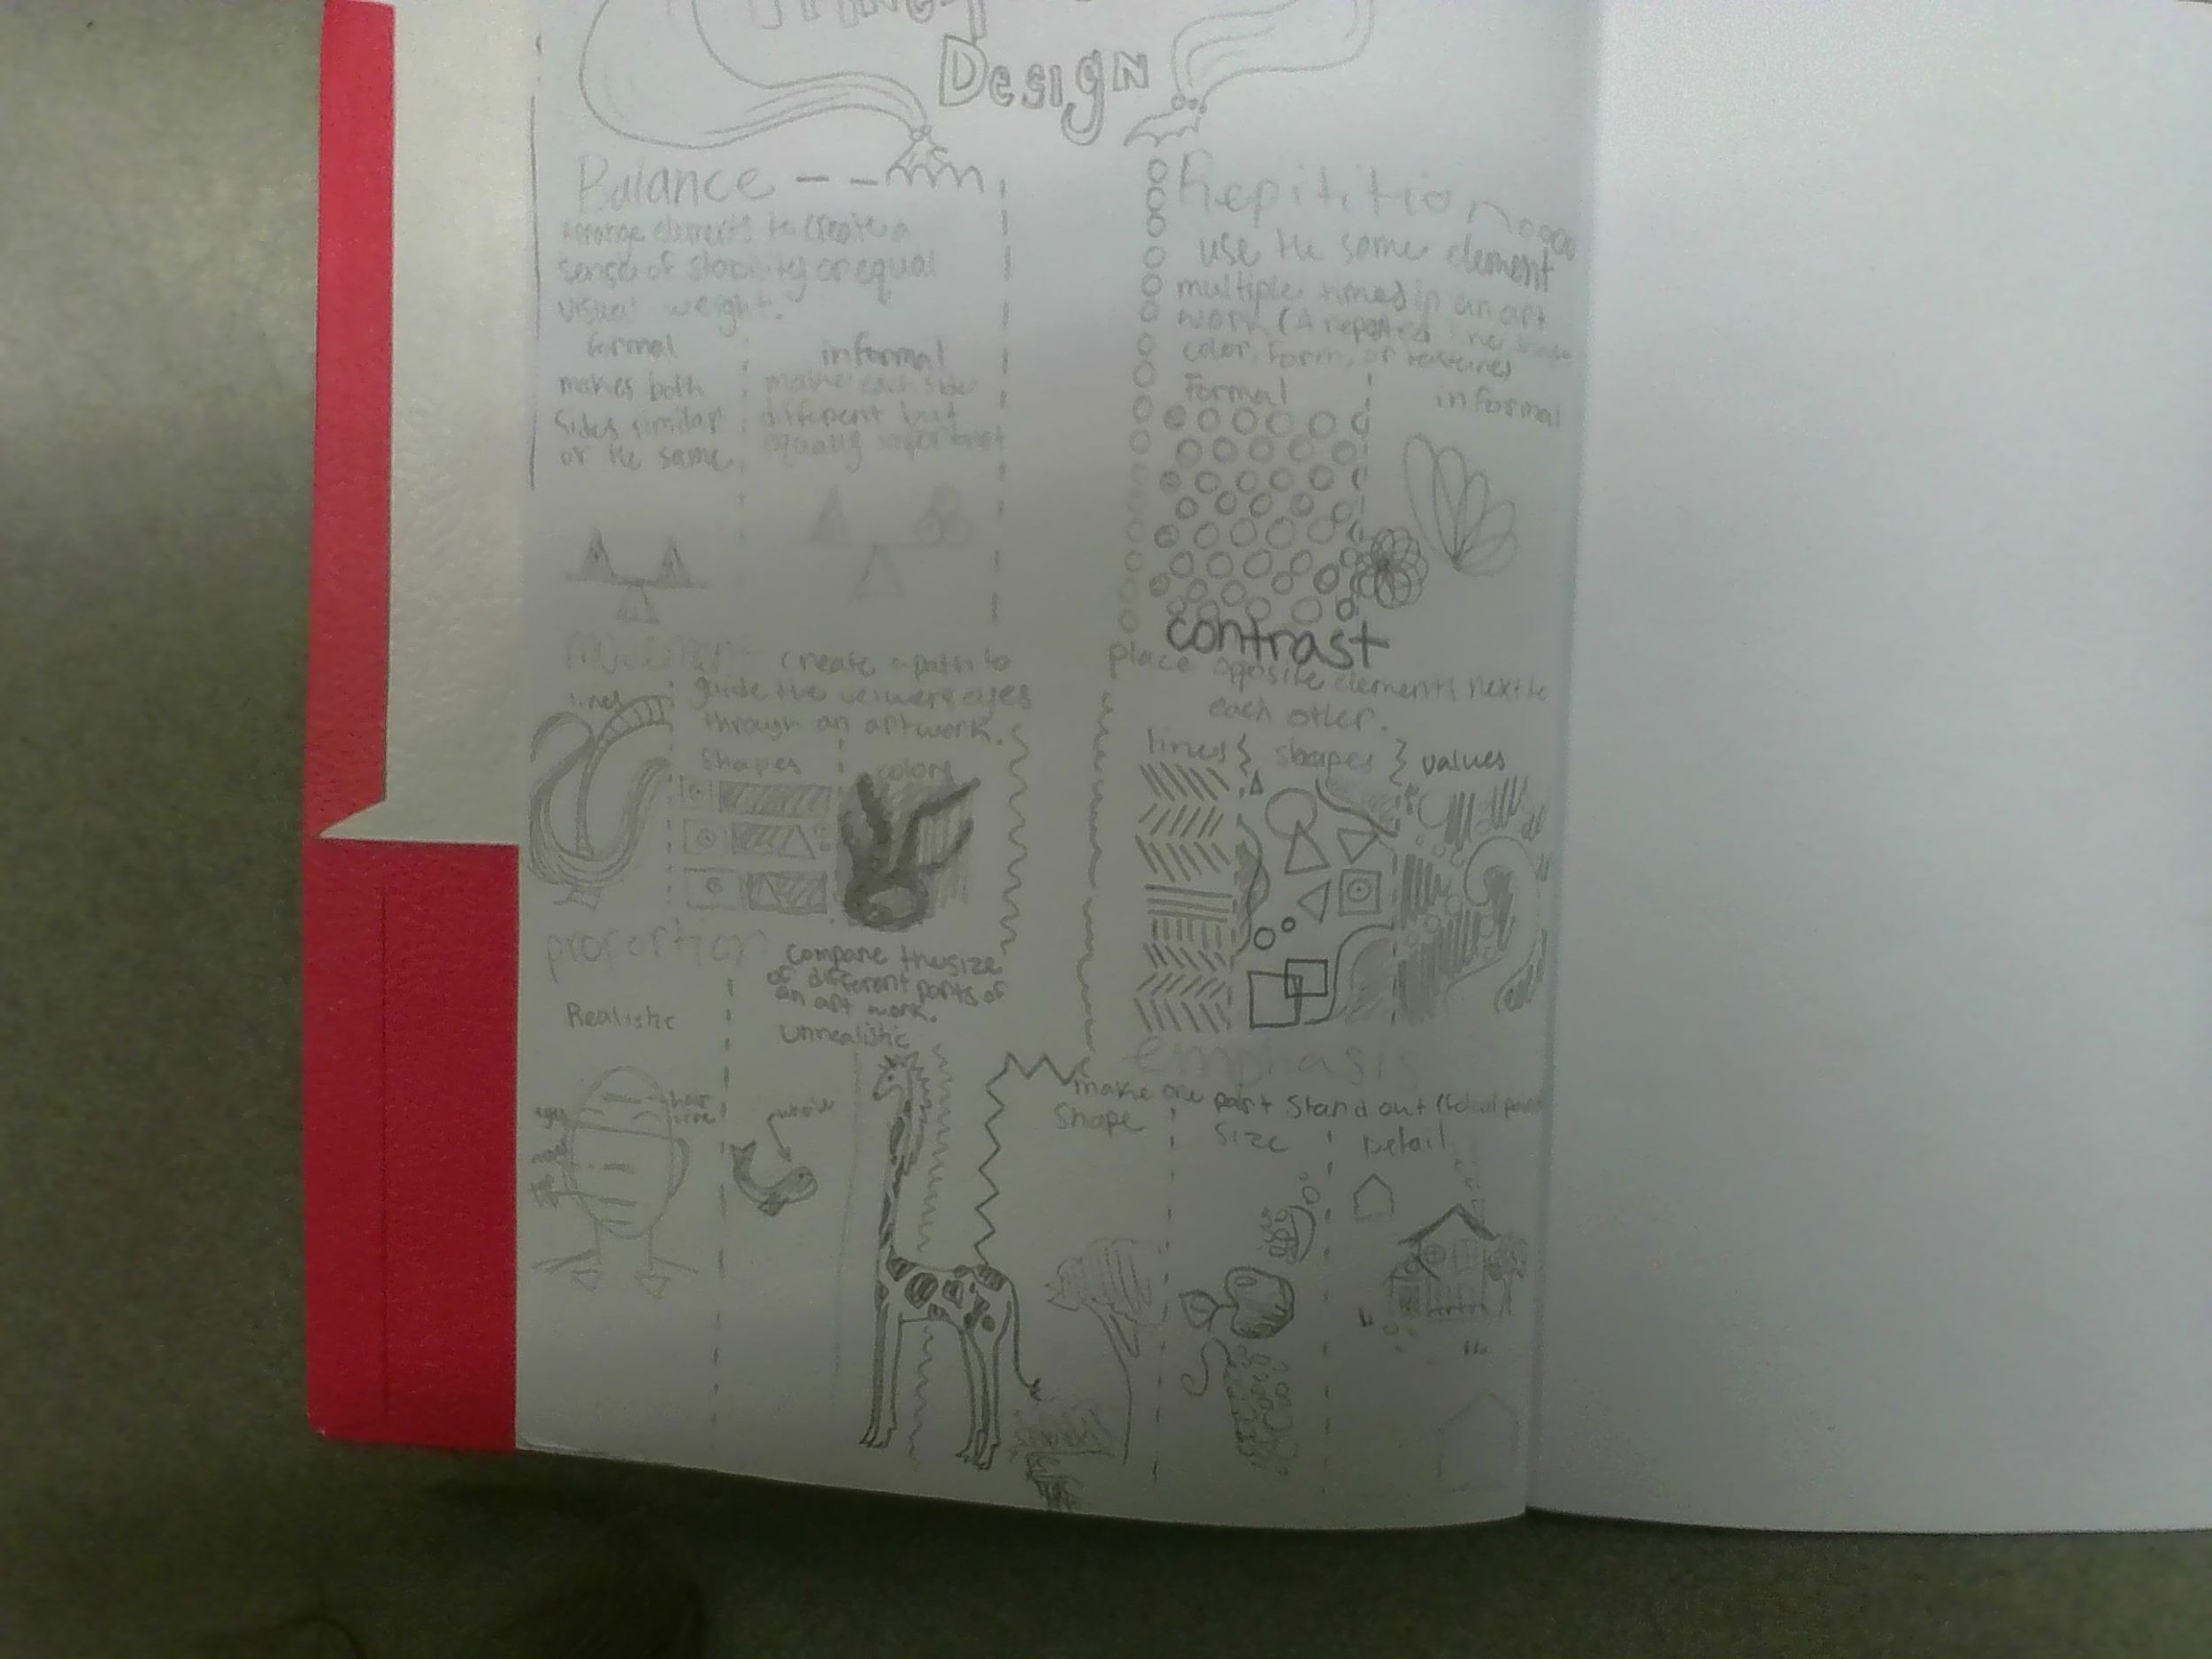 Design
Balance
arrange elements to create a
sense of stability or equal
visual weight.
formal
makes both
sides similar
or the same
informal
make each side
different but
equally important
Repitition
use the same element
multiple times in an art
work (A repeated
color, form, or
Formal
informal
Movement
create a path to
guide the
eyes
through an artwork.
lines
shapes
colors
contrast
place opposite elements next to
each other.
lines
shapes
values
proportion
compare the size
of different parts of
an art work.
Realistic
eyes
hair
line
Unrealistic
whale
emphasis
make one part Stand out (focal point
Shape
Size
Detail